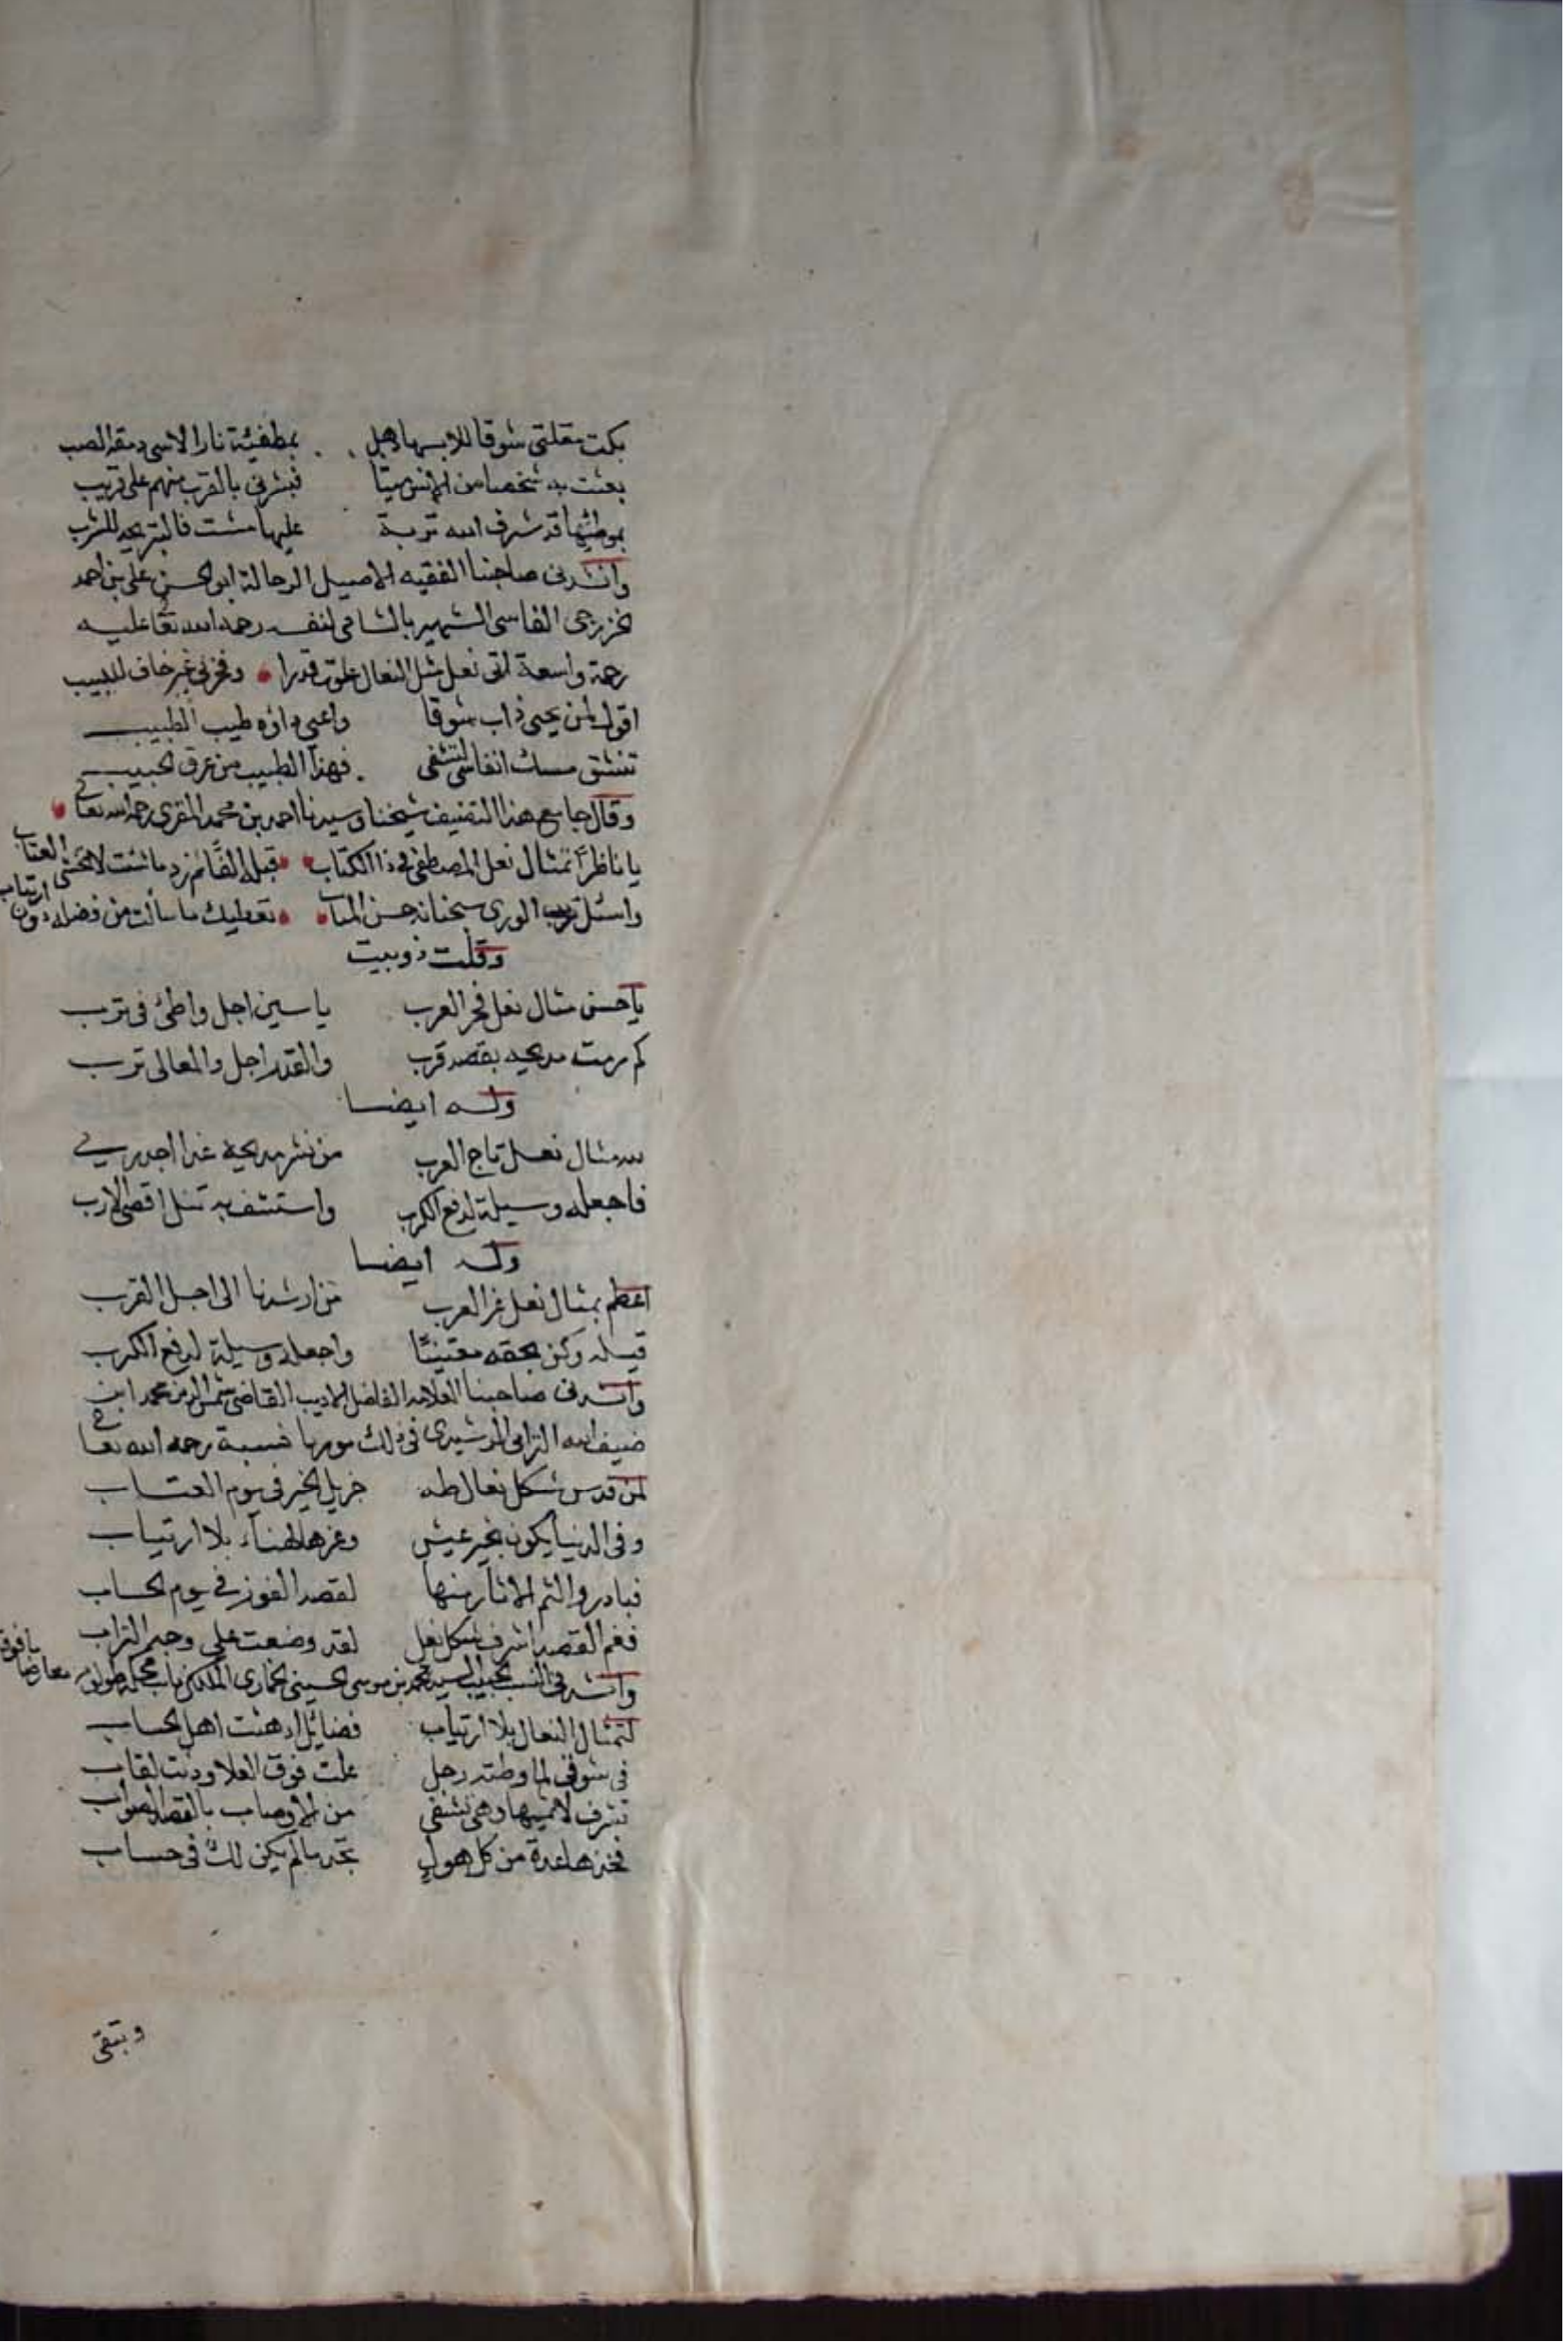 بكت مقلتي شوقا للابسها وهل بمطفئة نار الاسى دمعة الصب
بعثت به شخصا من الانس ميتا فبشرني بالقرب منهم على قريب
بموطئها قد شرف الله تربة عليها مشت
وانشدنى صاحبنا الفقيه الاصيل الرحالة ابو الحسن على بن احمد
الخزرجى الفاسى الشهير بالشامى لنفسه رحمه الله تعا عليه
رحمة واسعة انى نعل مثل النعال علوت قدرا وفخرى غير خاف للبيب
اقول لمن يحى ذاب شوقا واعيى داؤه طيب الطبيب
تنشق مسك انفاسى لتشفى فهذا الطيب من عرق الحبيب
وقال جامع هذا التصنيف شيخنا وسيدنا احمد بن محمد المقرى رحمه الله تعا
يا ناظرا تمثال نعل المصطفى فى ذا الكتاب قبله الفا ثم زد ما شئت لا تخشى العتاب
واسئل به رب الورى سبحانه حسن المئاب تعطيك ما سألت من فضله دون ارتياب
وقلت ذوبيت
يا حسن مثال نعل فخر العرب ياسين اجل واطئ فى ترب
كم رمت مديحه بقصد قرب والقدر اجل والمعالى ترب
وله ايضا
لله مثال نعل تاج العرب من نشر مديحه غدا اجدر بي
فاجعله وسيلة لدفع الكرب واستشف به تنل اقصى الارب
وله ايضا
اعظم بمثال نعل عز العرب من ارشدنا الى اجل القرب
قبله وكن بحقه معتنيا واجعله وسيلة لدفع الكرب
وانشدنى صاحبنا العلامه الفاضل الاديب القاضى شمس الدين محمد ابن
ضيف الله الرشيدى فى ذلك نسبة رحمه الله تعا
لمن قدس شكل نعال طه جزيل الخير فى يوم العتاب
وفى الدنيا يكون بخير عيش وعز ها لهناء بلا ارتياب
فبادر والثم الاثار منها لقصد الفوز فى يوم الحساب
فنعم القصد اشرف شكل نعل لقد وضعت على وجه التراب
وانشدنى السيد محمد بن موسى الحسينى الملكى معارضا ما فوقه
لتمثال النعال بلا ارتياب فضائل ادهشت اهل الحساب
فى شوقى لما وطئته رجل علت فوق العلا ودنت لقاب
تشرف لاثميها وهى تشفى من الاوصاب بالقصد الصواب
فخذها عدة من كل هول تجد ما لم يكن لك فى حساب
وتبقى